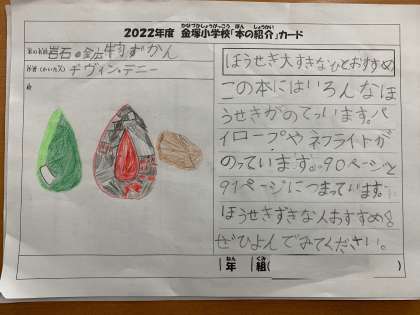 2022年度 金塚小学校「本の紹介」カード
かなづかしょうがっこう ほん しょうかい
本の名前 岩石・鉱物ずかん
作者(かいた人) デヴィン・デニー
絵
ほうせき大すきなひとおすすめ
この本にはいろんなほ
うせきがのっています。パ
イロープやネフライトが
のっています。90ページと
91ページにつまっています。
ほうせきずきな人おすすめ!
ぜひよんでみてください。
1年 組(
ねん くみ